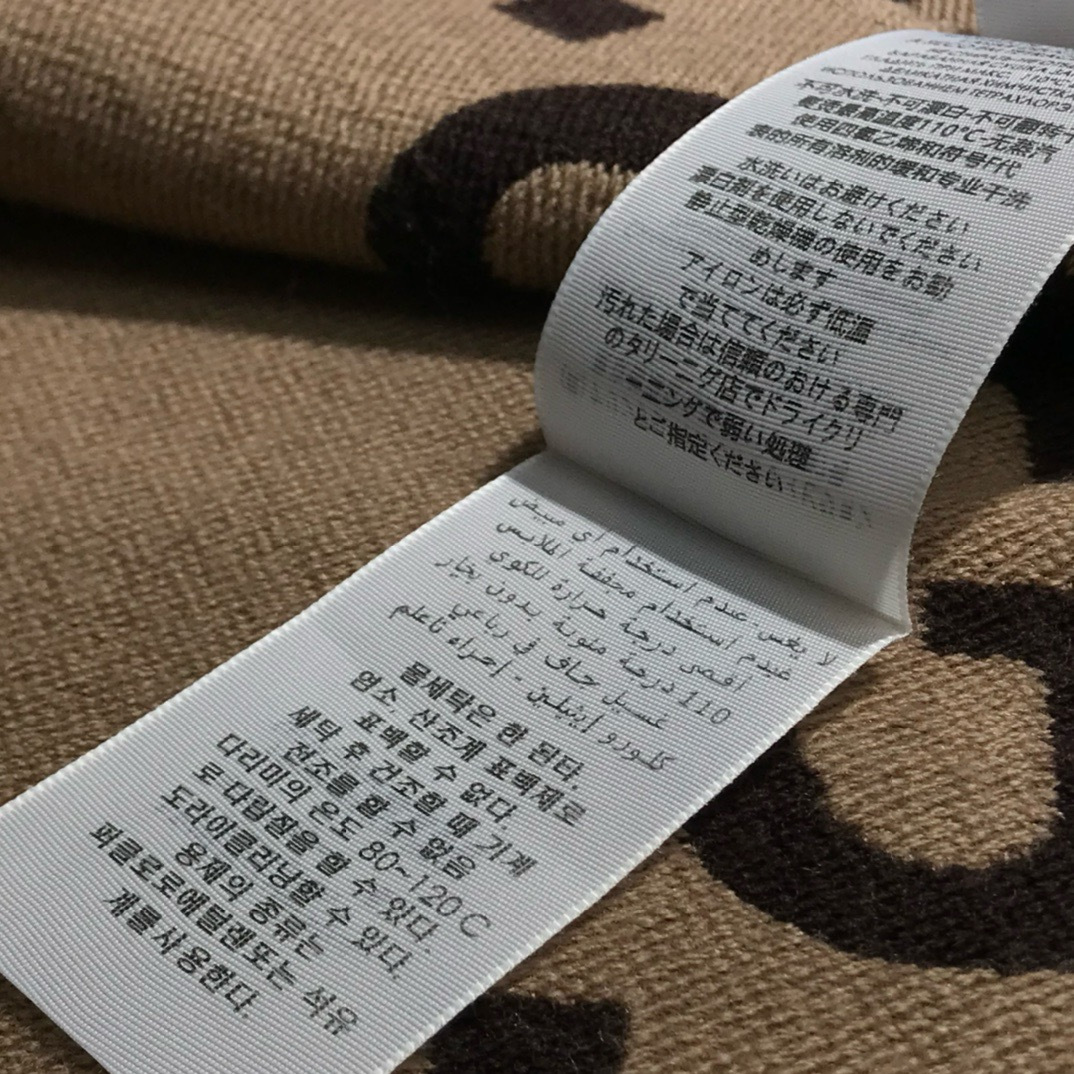 ДЕЛИКАТНАЯ ХИМЧИСТКА
不可水洗-不可漂白-不可翻转干
乾烫最高温度110°C-无蒸汽
使用四氯乙烯和符号F代
表的所有溶剂的缓和专业干洗
水洗いはお避けください
漂白剤を使用しないでください
静止型乾燥機の使用をお勧
めします
アイロンは必ず低温
で当ててください
汚れた場合は信頼のおける専門
のタリーニグ店でドライクリ
ーニングで弱い処理
とご指定ください
لا يغس عدم استخدام اي مبيض
عدم استخدام مجففة الملابس
أقصى درجة حرارة للكوي
110 درجة مئوية بدون بخار
غسيل جاف في رباعي
كلورو إيثيلين - إجراء ناعلم
물세탁은 한 된다.
염소 산조계 표백제로
표백할 수 없다.
세탁 후 건조할 때 기계
전조를 할 수 없음
다리미의 온도 80~120 C
도 다림질을 할 수 있다.
도라이클리닝할 수 있다.
용제의 종류는
퍼클로로에틸렌또는 석유
개를사용한다.